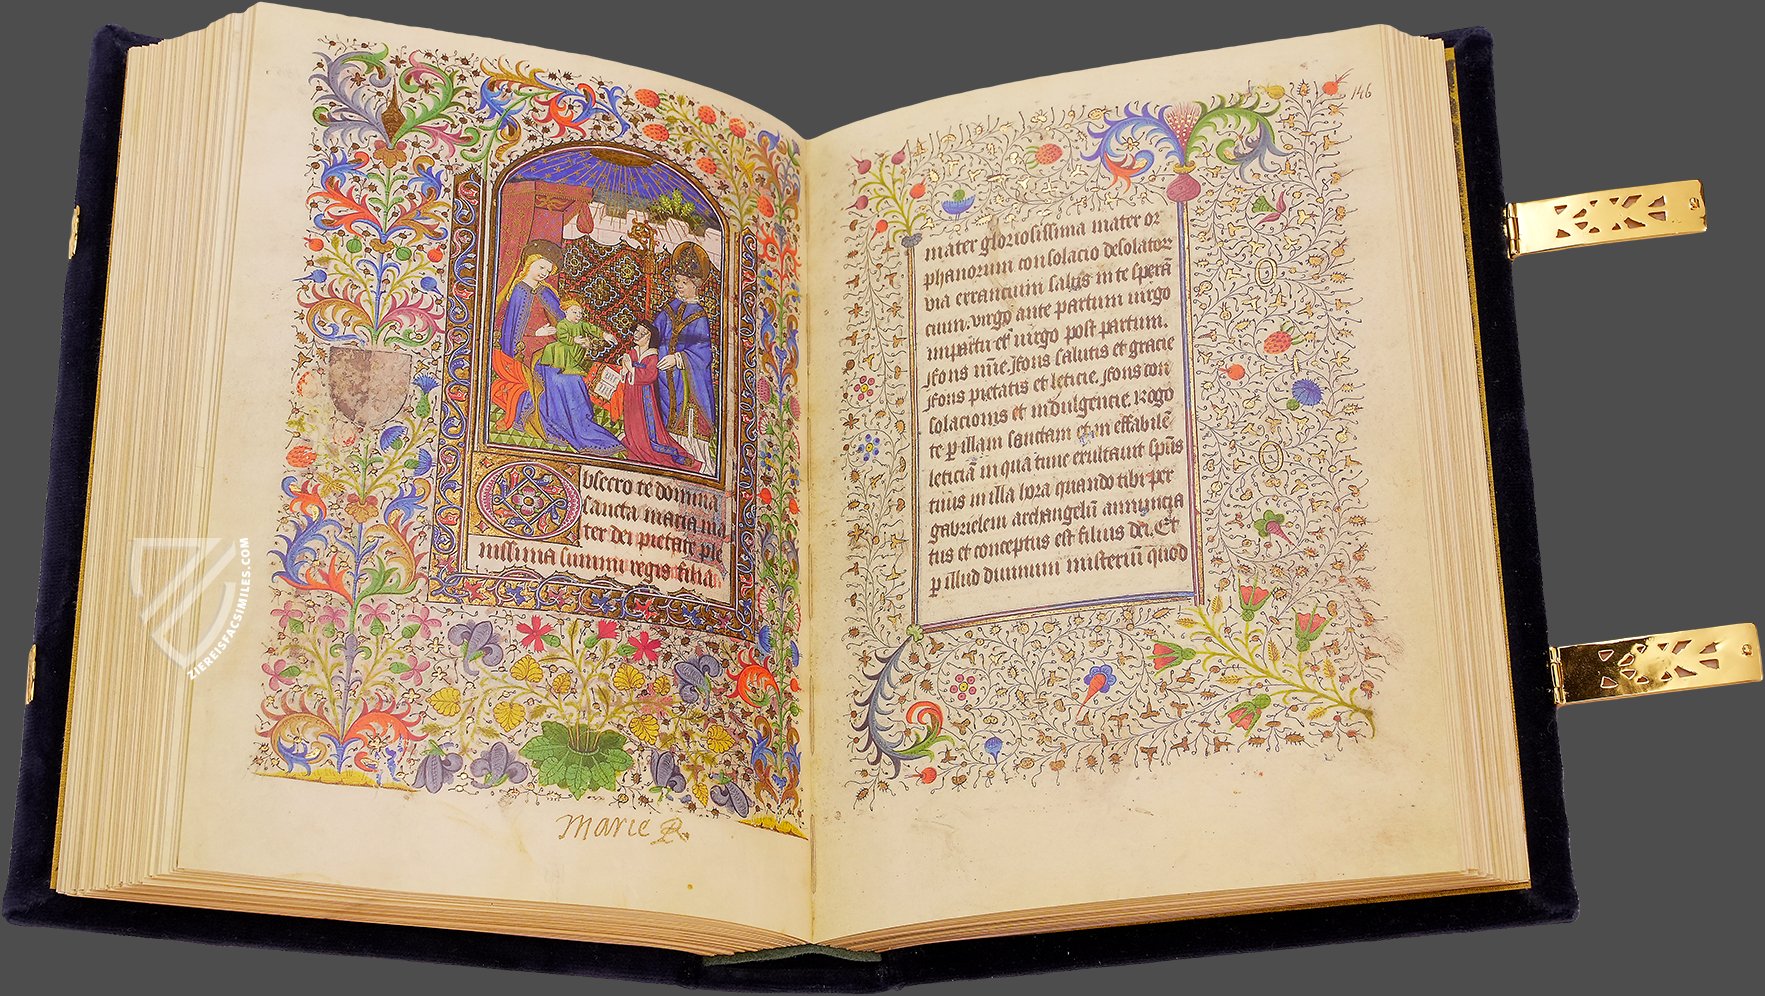 bsecro te domina
sancta maria ma
ter dei pietate ple
nissima summi regis filia
Marie R
146
mater gloriosissima mater or
phanorum consolacio desolator
via errancium salus in te sperā
cium. virgo ante partum virgo
in partu et virgo post partum.
fons mīe. fons salutis et gracie
fons pietatis et leticie. fons con
solacionis et indulgencie. rogo
te p illam sanctam et in effabilē
leticiā in qua tunc exultavit spūs
tuus in illa hora quando tibi per
gabrielem archangelū annuncia
tus et conceptus est filius dei. Et
p illud divinum misteriū quod
ZIEREISFACSIMILES.COM